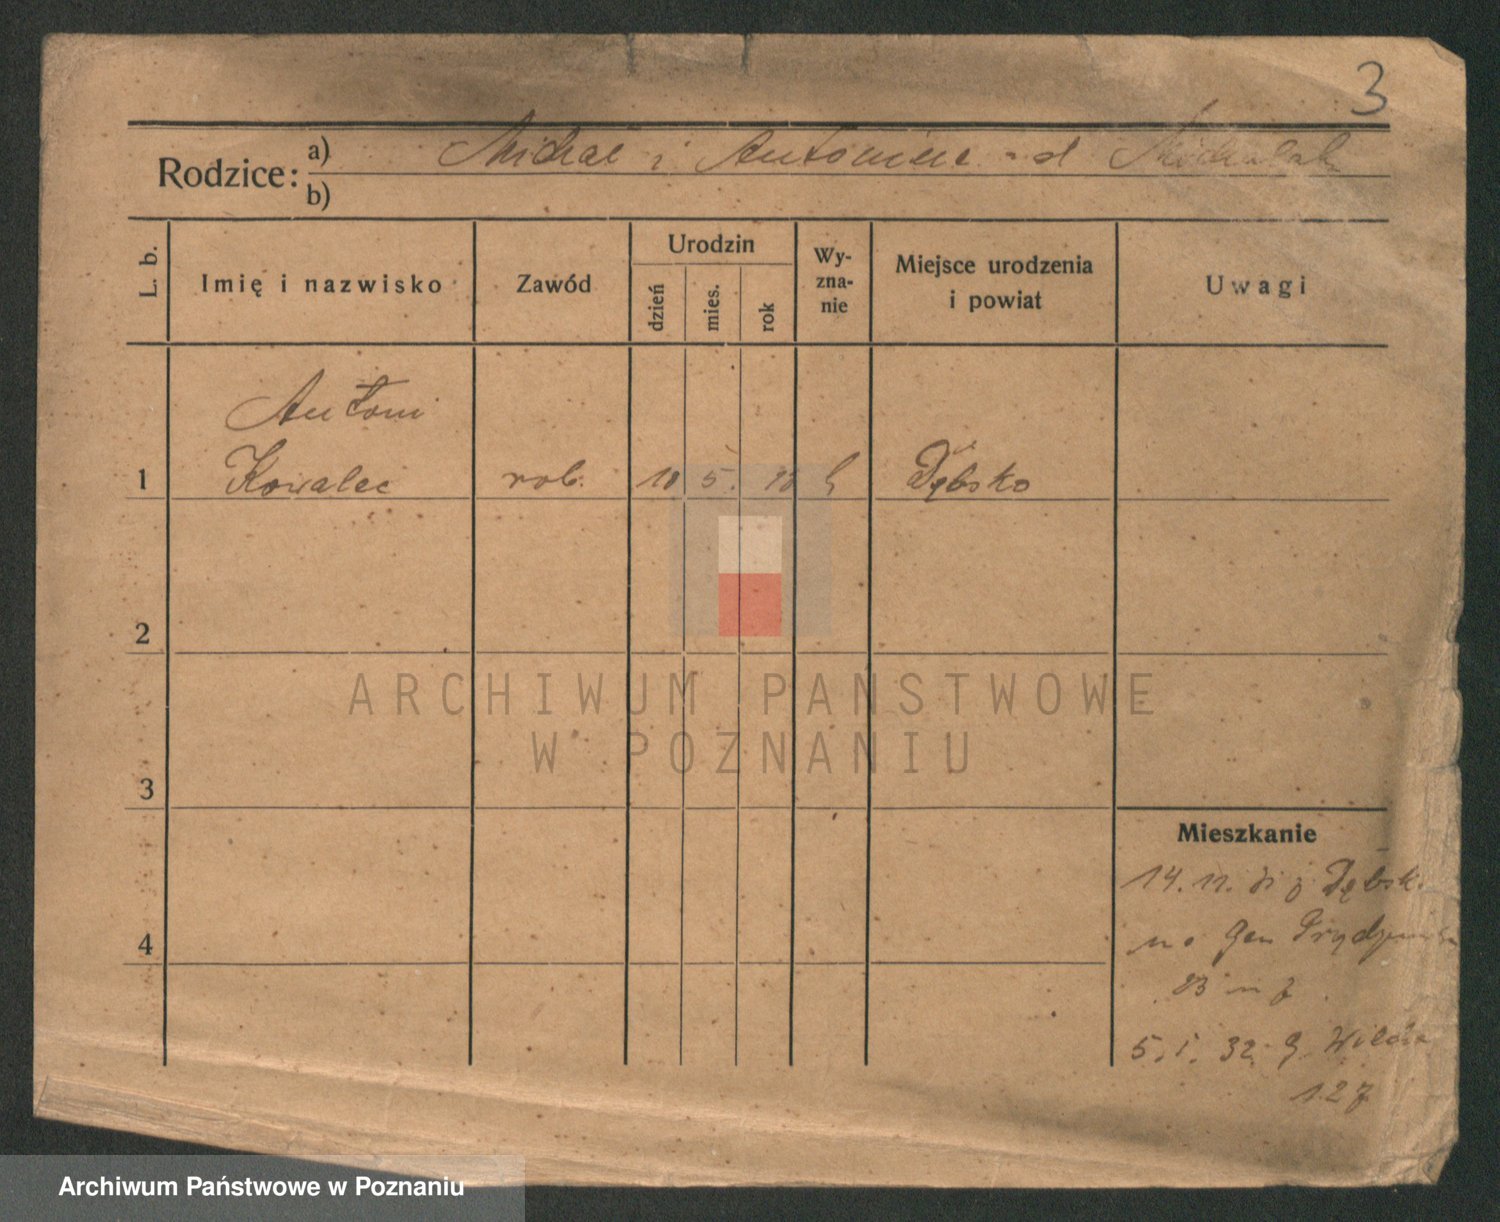 3
Rodzice: a) Michał i Antonina
b)
L. b.
Imię i nazwisko
Zawód
Urodzin
dzień
mies.
rok
Wy-
zna-
nie
Miejsce urodzenia
i powiat
Uwagi
Antoni
1 Kowalec rob. 10 5. Dębsko
2
ARCHIWUM PAŃSTWOWE
W POZNANIU
3
Mieszkanie
14. 11. Dębsk
4
na Gen Prądzyńsk
83 m 7
5. 1. 32 G. Wilda
127
Archiwum Państwowe w Poznaniu